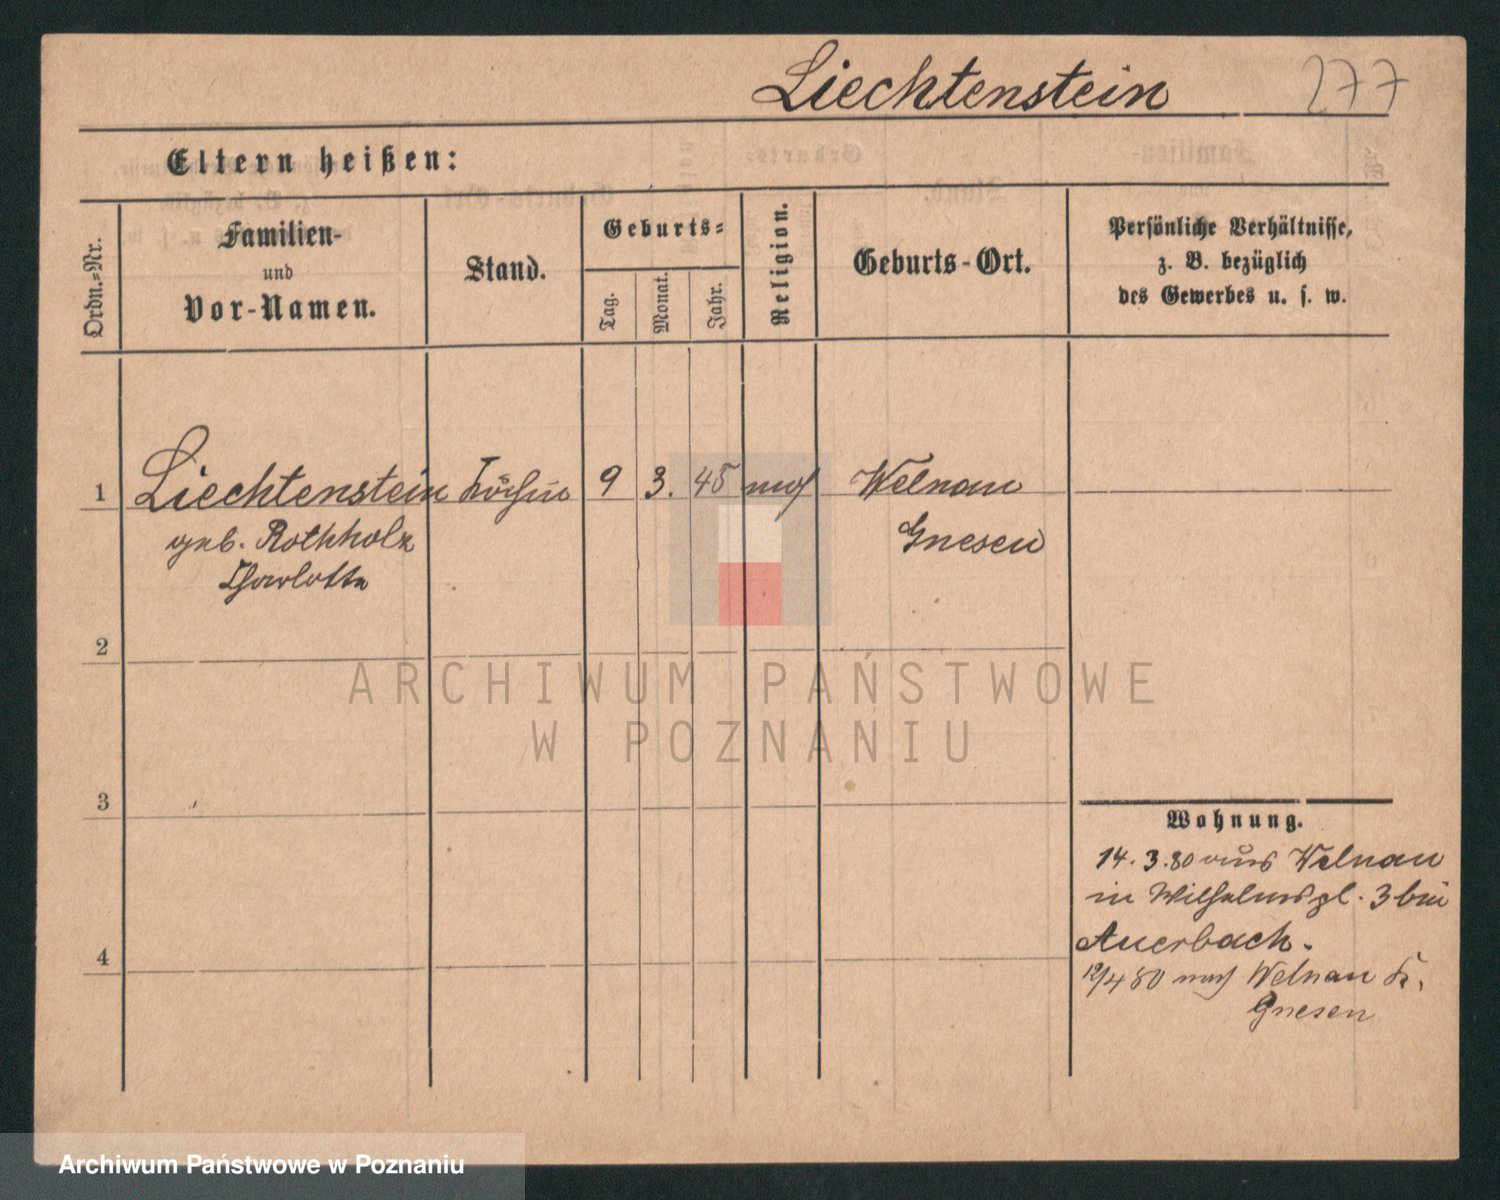 Liechtenstein 277
Eltern heißen:
Ordn.-Nr.
Familien-
und
Vor-Namen.
Stand.
Geburts-
Tag.
Monat.
Jahr.
Religion.
Geburts-Ort.
Persönliche Verhältnisse,
z. B. bezüglich
des Gewerbes u. s. w.
1 Liechtenstein Köchin 9 3. 45 mos Welnau
geb. Rothholz Gnesen
Charlotte
2
3
4
Wohnung.
14.3.80 aus Welnau
in Wilhelmspl. 3 bei
Auerbach.
12/4 80 nach Welnau Kr.
Gnesen
ARCHIWUM PAŃSTWOWE
W POZNANIU
Archiwum Państwowe w Poznaniu